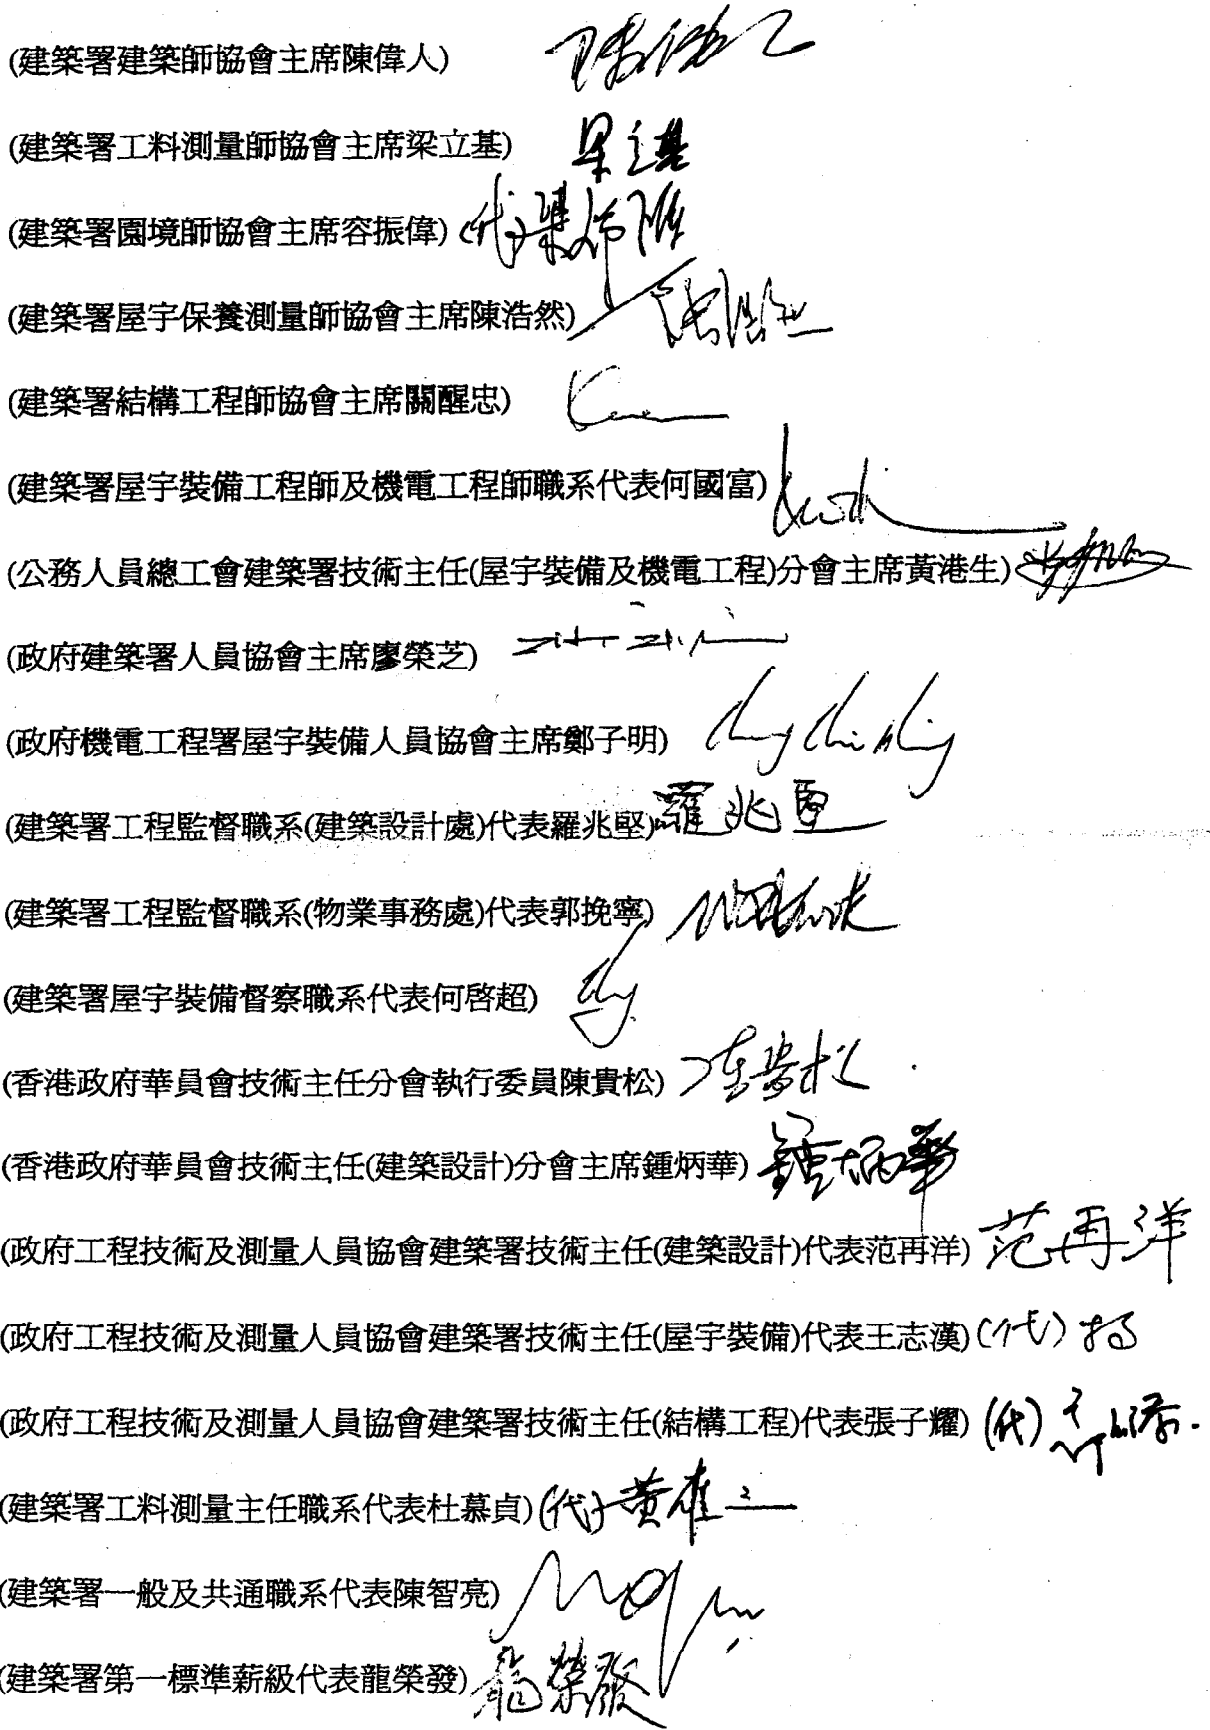 (建築署建築師協會主席陳偉人)
(建築署工料測量師協會主席梁立基) 梁立基
(建築署園境師協會主席容振偉) (代)
(建築署屋宇保養測量師協會主席陳浩然) 陳浩然
(建築署結構工程師協會主席關醒忠)
(建築署屋宇裝備工程師及機電工程師職系代表何國富)
(公務人員總工會建築署技術主任(屋宇裝備及機電工程)分會主席黃港生)
(政府建築署人員協會主席廖榮芝)
(政府機電工程署屋宇裝備人員協會主席鄭子明)
(建築署工程監督職系(建築設計處)代表羅兆堅) 羅兆堅
(建築署工程監督職系(物業事務處)代表郭挽寧)
(建築署屋宇裝備督察職系代表何啓超)
(香港政府華員會技術主任分會執行委員陳貴松) 陳貴松
(香港政府華員會技術主任(建築設計)分會主席鍾炳華) 鍾炳華
(政府工程技術及測量人員協會建築署技術主任(建築設計)代表范再洋) 范再洋
(政府工程技術及測量人員協會建築署技術主任(屋宇裝備)代表王志漢) (代)
(政府工程技術及測量人員協會建築署技術主任(結構工程)代表張子耀) (代)
(建築署工料測量主任職系代表杜慕貞) (代) 黃
(建築署一般及共通職系代表陳智亮)
(建築署第一標準薪級代表龍榮發) 龍榮發